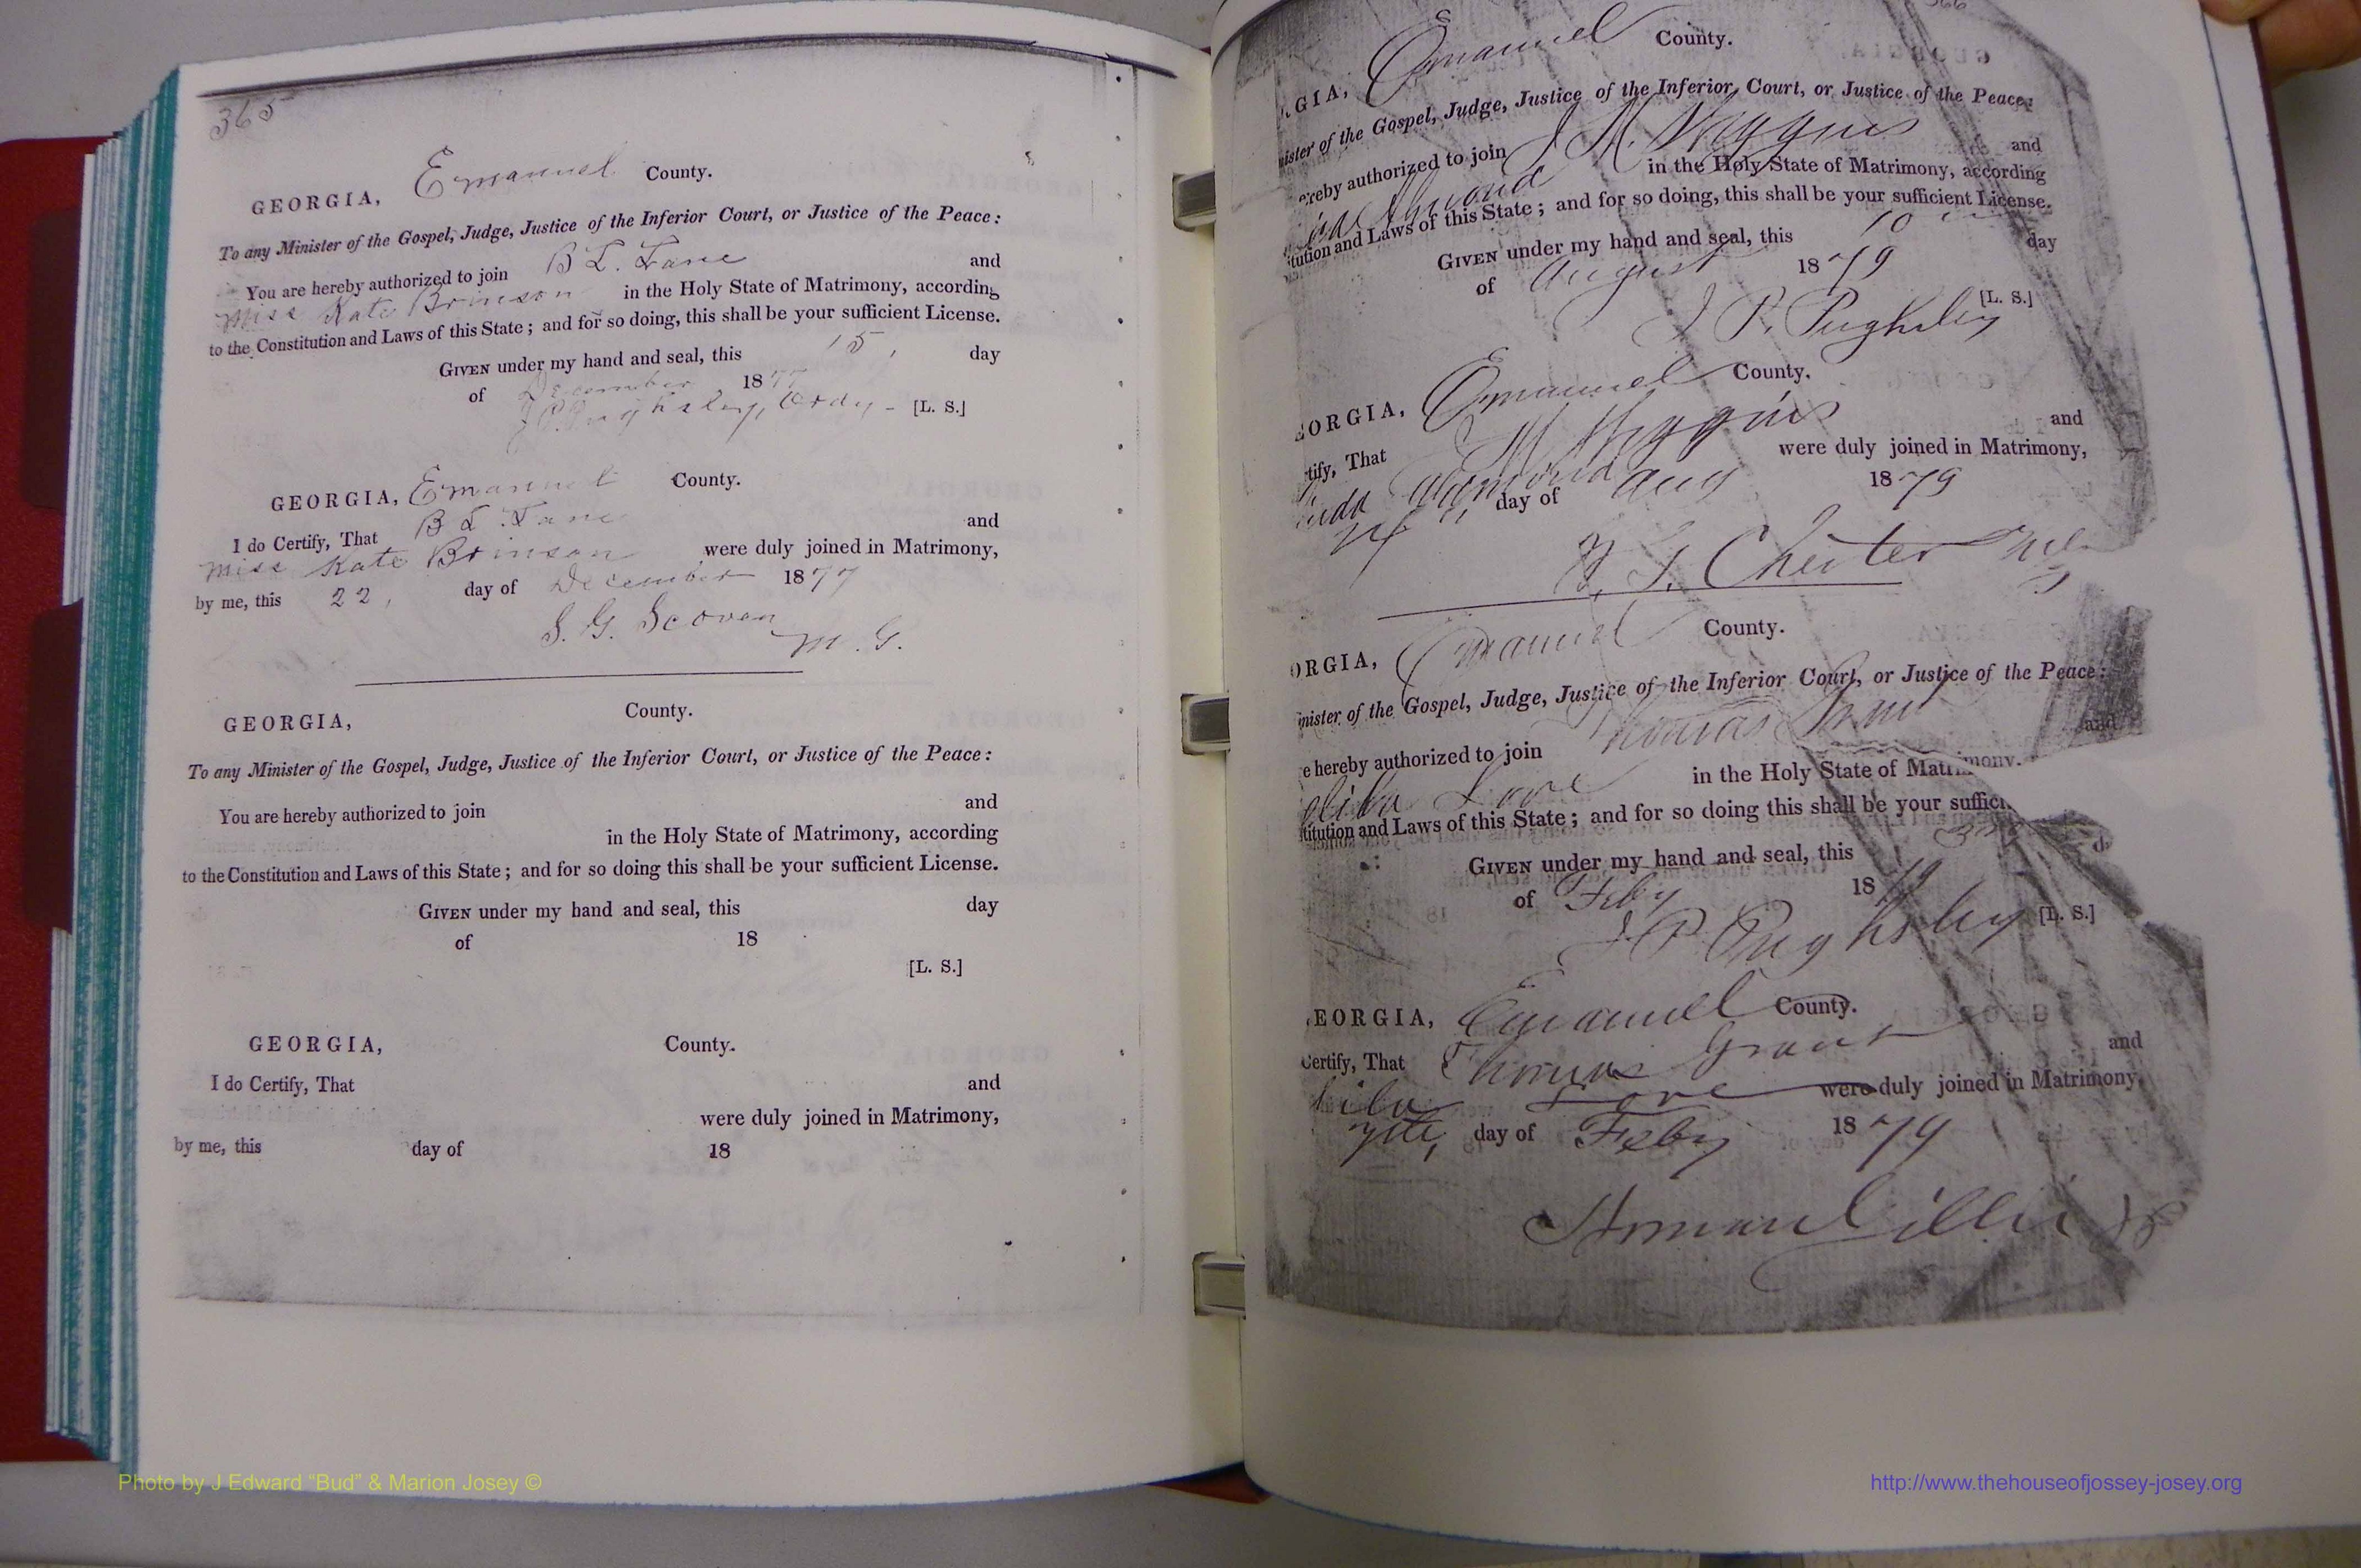 365
GEORGIA, Emanuel County.
To any Minister of the Gospel, Judge, Justice of the Inferior Court, or Justice of the Peace:
You are hereby authorized to join B L. Lane and
Miss Kate Brinson in the Holy State of Matrimony, according
to the Constitution and Laws of this State; and for so doing, this shall be your sufficient License.
GIVEN under my hand and seal, this 15, day
of December 1877
J P. Pughsley, Ordy- [L. S.]
GEORGIA, Emanuel County.
I do Certify, That B L Lane and
Miss Kate Brinson were duly joined in Matrimony,
by me, this 22, day of December 1877
S. G. Scoven
M. G.
GEORGIA, County.
To any Minister of the Gospel, Judge, Justice of the Inferior Court, or Justice of the Peace:
You are hereby authorized to join and
in the Holy State of Matrimony, according
to the Constitution and Laws of this State; and for so doing this shall be your sufficient License.
GIVEN under my hand and seal, this day
of 18
[L. S.]
GEORGIA, County.
I do Certify, That and
were duly joined in Matrimony,
by me, this day of 18
366
GIA, Emanuel County.
ister of the Gospel, Judge, Justice of the Inferior Court, or Justice of the Peace:
ereby authorized to join J H. Higgins and
in the Holy State of Matrimony, according
tution and Laws of this State; and for so doing, this shall be your sufficient License.
GIVEN under my hand and seal, this 10 day
of August 1879
J P. Pughsley [L. S.]
ORGIA, Emanuel County.
tify, That Higgins and
were duly joined in Matrimony,
day of Aug 1879
Chester
ORGIA, Emanuel County.
nister of the Gospel, Judge, Justice of the Inferior Court, or Justice of the Peace:
e hereby authorized to join Thomas and
Love in the Holy State of Matrimony.
titution and Laws of this State; and for so doing this shall be your suffici
GIVEN under my hand and seal, this d
of Feby 1879
J P. Pughsley [L. S.]
EORGIA, Emanuel County.
Certify, That Thomas Grant and
Love were duly joined in Matrimony,
day of Feby 1879
Photo by J Edward “Bud” & Marion Josey ©
http://www.thehouseofjossey-josey.org